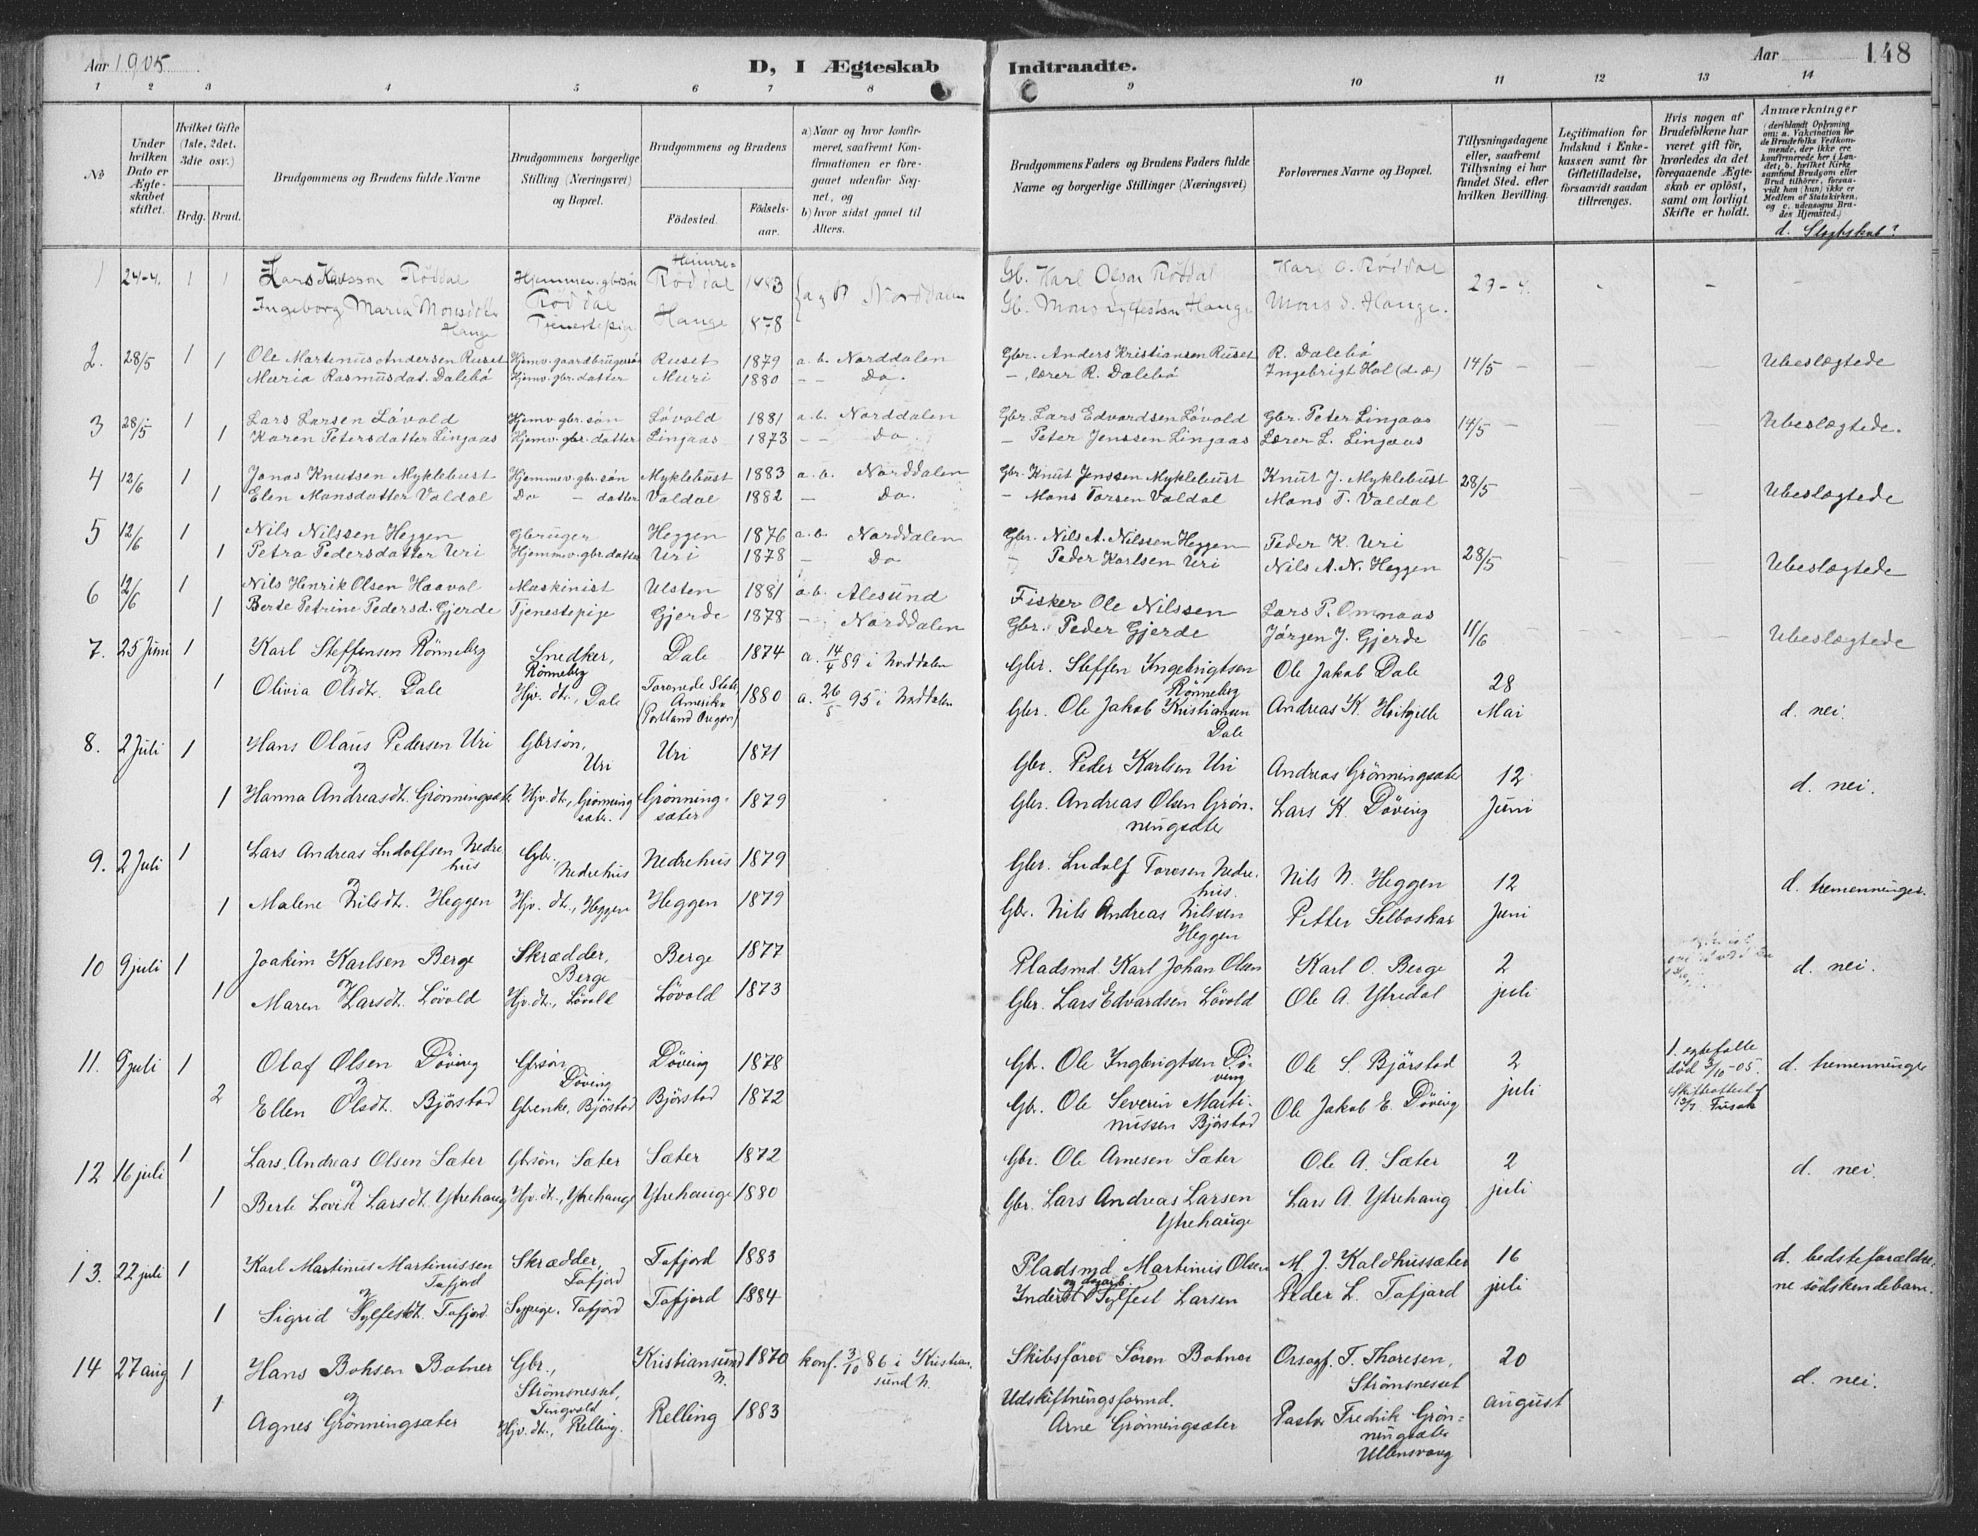 Aar 1905
D, I Ægteskab
Indtraadte.
Aar
148
1 2 3 4 5 6 7 8 9 10 11 12 13 14
No
Under hvilken Dato er Ægteskabet stiftet.
Hvilket Gifte (1ste, 2det, 3die osv.)
Brdg. Brud.
Brudgommens og Brudens fulde Navne
Brudgommens borgerlige Stilling (Næringsvei) og Bopæl.
Brudgommens og Brudens
Fødested.
Fødselsaar.
a) Naar og hvor konfirmeret, saafremt Konfirmationen er foregaaet udenfor Sognet, og
b) hvor sidst gaaet til Alters.
Brudgommens Faders og Brudens Faders fulde Navne og borgerlige Stillinger (Næringsvei)
Forlovernes Navne og Bopæl.
Tillysningsdagene eller, saafremt Tillysning ei har fundet Sted, efter hvilken Bevilling.
Legitimation for Indskud i Enkekassen samt for Giftetilladelse, forsaavidt saadan tiltrænges.
Hvis nogen af Brudefolkene har været gift før, hvorledes da det foregaaende Ægteskab er opløst, samt om lovligt Skifte er holdt.
Anmærkninger
d. Slægtskab?
1 24-4. 1 1 Lars Karlsson Røddal Hjemmev. gbrsøn Røddal 1883 a g b Norddalen Gb. Karl Olson Røddal Karl O. Røddal 29-4.
Ingeborg Maria Monsdtr. Hauge Tjenestepig Hauge 1878 Gb. Mons Sylfestson Hauge Mons S. Hauge.
2. 28/5 1 Ole Martinus Andersen Ruset Hjemv. gaardbrugersøn Ruset 1879 a. b. Norddalen Gbr. Anders Kristiansen Ruset R. Dalebø 14/5 Ubeslægtede
1 Maria Rasmusdat. Dalebø Hjemv. gbr. datter Muri 1880 - - Do. - lærer R. Dalebø Ingebrigt Hol
3 28/5 1 Lars Larsen Løvold Hjemv. gbr. søn Løvold 1881 a. b. Norddalen Gbr. Lars Edvardsen Løvold Gbr. Peter Lingaas 14/5 Ubeslægtede.
1 Karen Petersdatter Lingaas Hjemv. gbr. datter Lingaas 1873 - - Do. - Peter Jenssen Lingaas Lærer L. Lingaas
4 12/6 1 Jonas Knutsen Myklebust Hjemmev. gbr. søn Myklebust 1883 a. b. Norddalen Gbr. Knut Jenssen Myklebust Knut J. Myklebust 28/5 Ubeslægtede
1 Elen Monsdatter Valdal Do - datter Valdal 1882 - Do. - Mons Torsen Valdal Mons T. Valdal
5 12/6 1 Nils Nilssen Heggen Gbruger Heggen 1876 a. b. Norddalen Gbr. Nils A. Nilssen Heggen Peder K. Uri 28/5 Ubeslægtede
1 Petra Pedersdatter Uri Hjemmev. gbr. datter Uri 1878 - Do Peder Karlsen Uri Nils A. N. Heggen
6 12/6 1 Nils Henrik Olsen Haavol Maskinist Ulsten 1881 a. b. Alesund Fisker Ole Nilssen Lars P. Omnaas 11/6 Ubeslægtede
1 Berte Petrine Pedersd. Gjerde Tjenestepige Gjerde 1878 - Norddalen Gbr. Peder Gjerde Jørgen J. Gjerde
7. 25 Juni 1 Karl Steffensen Rønneberg Snedker, Rønneberg Dale 1874 a. 14/4 89 i Norddalen Gbr. Steffen Ingebrigtsen Rønneberg Ole Jakob Dale 28 Mai d. nei.
og
1 Olivia Olsdt. Dale Hjv. dt., Dale Forenede Stater Amerika (Portland Oregon) 1880 a. 26/5 95 i Norddalen Gbr. Ole Jakob Kristiansen Dale Andreas K.
8. 2 Juli 1 Hans Olaus Pedersen Uri Gbrsøn, Uri Uri 1871 Gbr. Peder Karlsen Uri Andreas Grønningsæter 12 Juni d. nei.
og
1 Hanna Andreasdt. Grønningsæter Hjv. dt., Grønningsæter. Grønningsæter 1879 Gbr. Andreas Olsen Grønningsæter Lars K. Døving
9. 2 Juli 1 Lars Andreas Ludolfsen Nedrehus Gbr. Nedrehus Nedrehus 1879 Gbr. Ludolf Toresen Nedrehus. Nils N. Heggen 12 Juni d. tremenninger.
og
1 Malene Nilsdt. Heggen Hjv. dt., Heggen Heggen 1879 Gbr. Nils Andreas Nilssen Heggen Petter Selboskar
10 9 juli 1 Joakim Karlsen Berge Skrædder, Berge Berge 1877 Pladsmd. Karl Johan Olsen Karl O. Berge 2 juli d. nei.
og
1 Maren Larsdt. Løvold Hjv. dt., Løvoll Løvold 1873 Gbr. Lars Edvardsen Løvold Ole A. Ytredal
11. 9 juli 1 Olaf Olsen Døving Gbrsøn Døving Døving 1878 Gbr. Ole Ingebrigtsen Døving Ole S. Bjørstad 2 juli 1. egtefelle død 3/10-05. Skifteattest af 13/7 Fusah d. tremenninger
og
2 Ellen Olsdt. Bjørstad Gbrenke, Bjørstad Bjørstad 1872 Gb. Ole Severin Martinussen Bjørstad Ole Jakob E. Døving
12 16 juli 1 Lars Andreas Olsen Sæter Gbrsøn, Sæter Sæter 1872 Gbr. Ole Arnesen Sæter Ole A. Sæter 2 juli d. nei.
og
1 Berte Lovise Larsdt. Ytrehaug Hjv. dt., Ytrehauge Ytrehauge 1880 Gbr. Lars Andreas Larsen Ytrehauge Lars A. Ytrehaug
13. 22 juli 1 Karl Martinus Martinussen Tafjord Skrædder, Tafjord Tafjord 1883 Pladsmd Martinus Olsen M. J. Kaldhussæter 16 juli d. bedsteforældrene sødskendebarn.
og
1 Sigrid Sylfestdt. Tafjord Syppige, Tafjord Tafjord 1884 Inderst og dagarb. Sylfest Larsen Peder L. Tafjord
14 27 aug 1 Hans Bohsen Botner Gbr., Strømsneset, Tingvold Kristiansund N. 1870 konf. 3/10 86 i Kristiansund N. Skibsfører Søren Botner Orsogf. T. Thoresen, Strømsneset 20 august d. nei.
og
1 Agnes Grønningsæter Hjv. dt., Relling. Relling 1883 Udskiftningsformd. Arne Grønningsæter Pastor Fredrik Grønningsæter Ullensvang